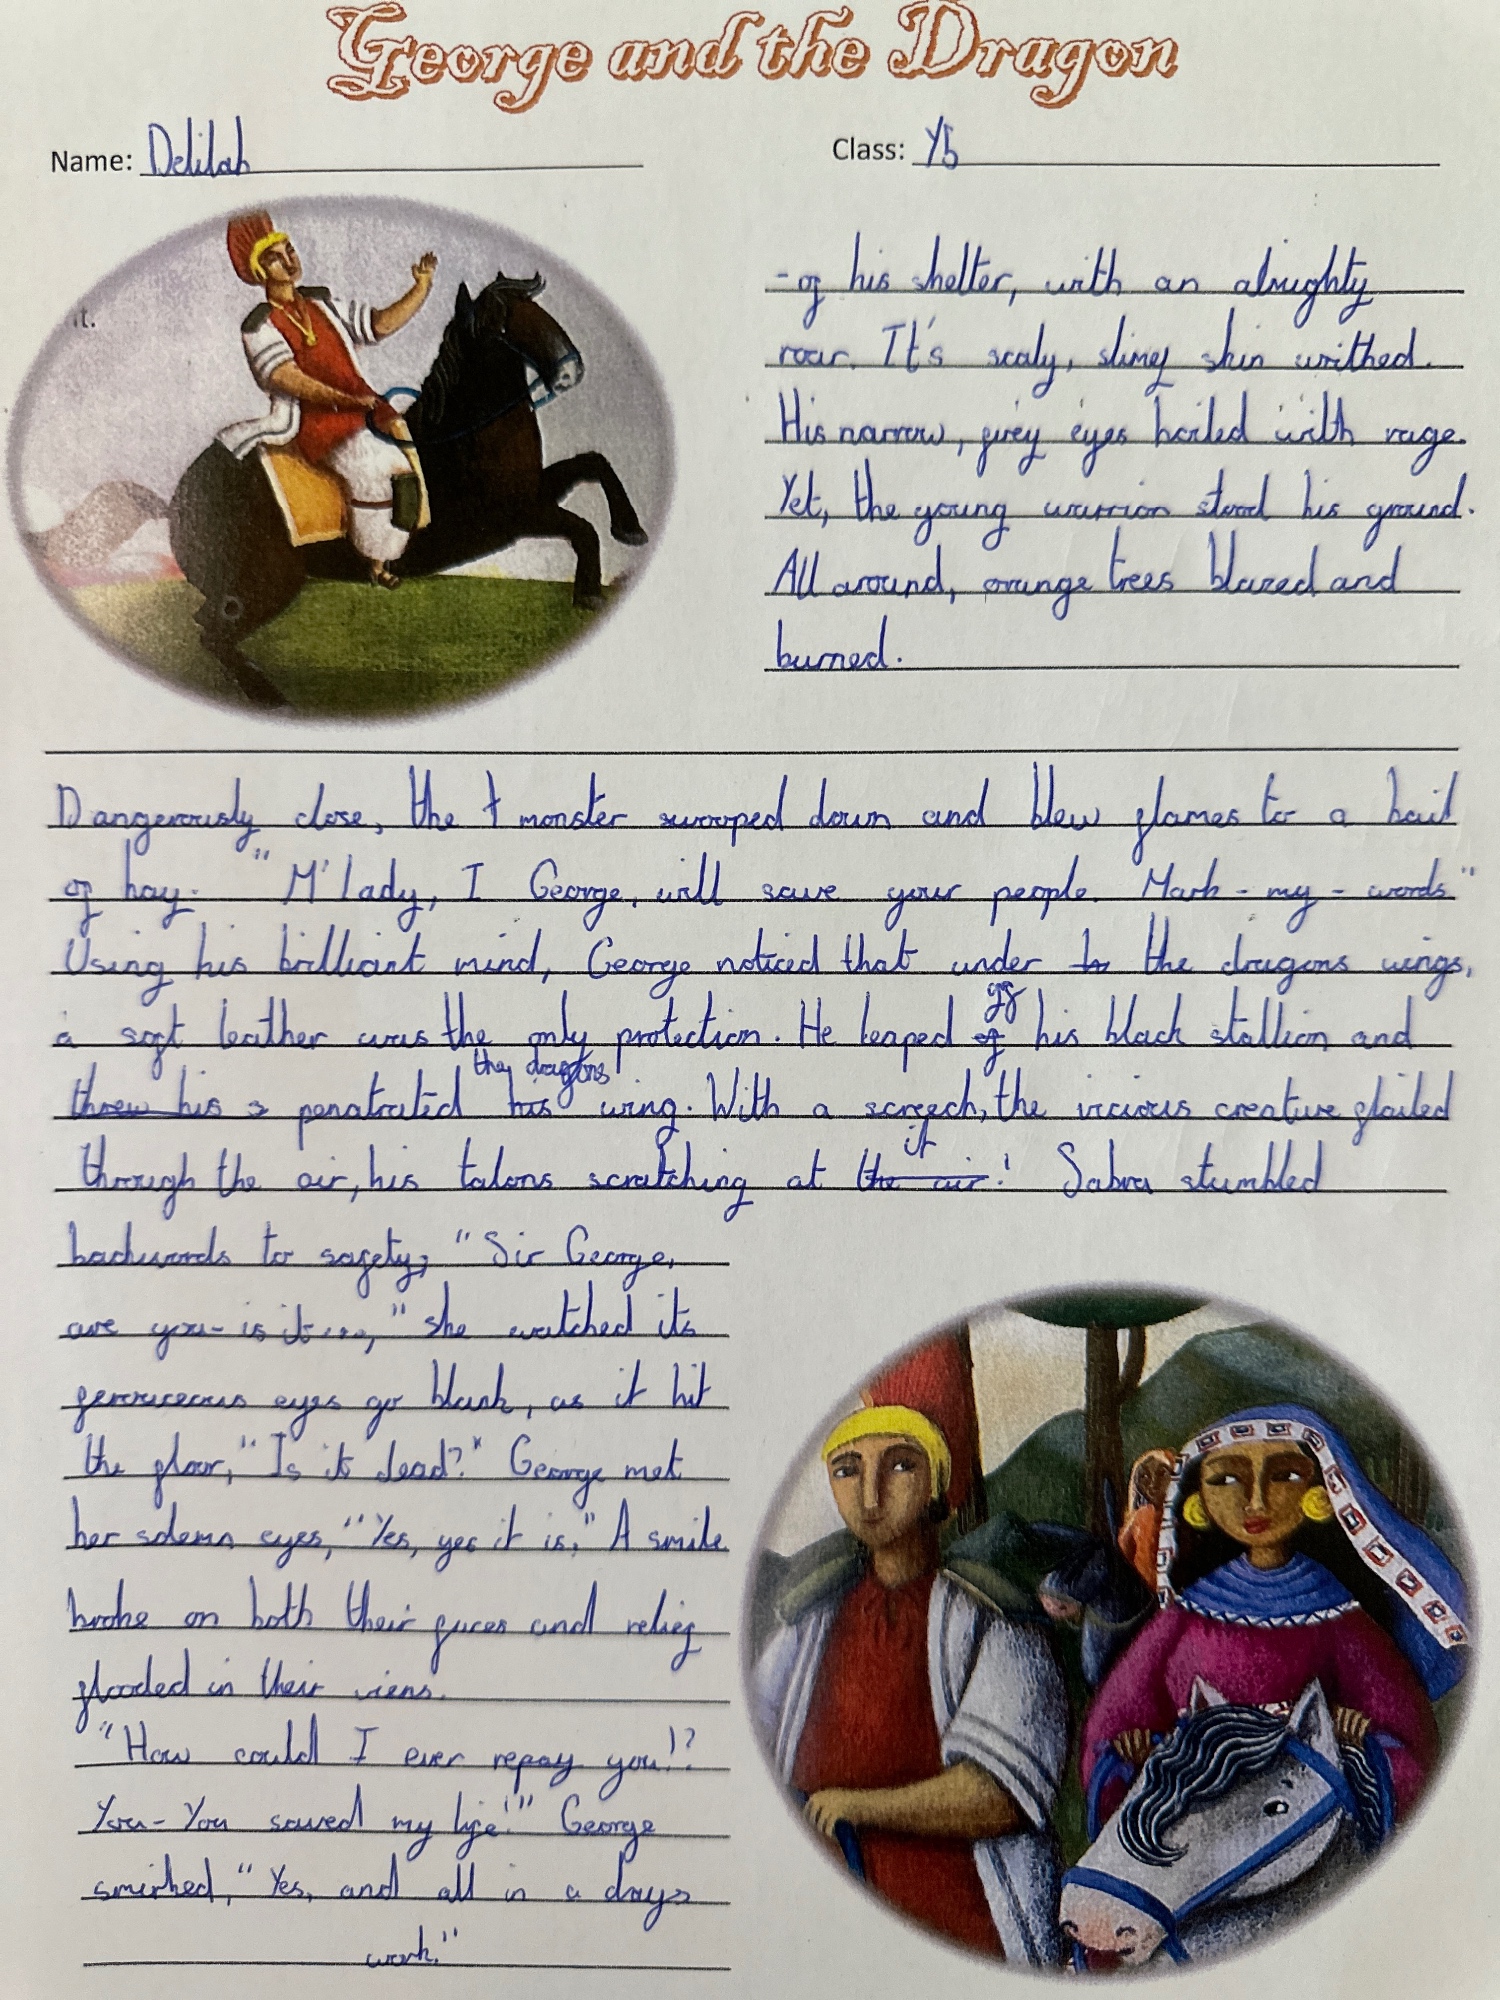 George and the Dragon
Name: Delilah
Class: Y5
it.
- of his shelter, with an almighty
roar. It's scaly, slimey skin writhed.
His narrow, grey eyes boiled with rage.
Yet, the young warrior stood his ground.
All around, orange trees blazed and
burned.
Dangerously close, the t monster swooped down and blew flames to a bail
of hay. "M'lady, I George, will save your people. Mark - my - words"
Using his brilliant mind, George noticed that under the dragons wings,
a soft leather was the only protection. He leaped off his black stallion and
threw his s penatrated the dragons wing. With a screech, the vicious creature flailed
through the air, his talons scratching at the air it! Sabra stumbled
backwords to safety; "Sir George,
are you- is it ...," she watched its
ferrouceous eyes go blank, as it hit
the floor, "Is it dead?" George met
her solemn eyes, "Yes, yes it is." A smile
broke on both their faces and relief
flooded in their viens.
"How could I ever repay you!?
You- You saved my life!" George
smirked, "Yes, and all in a days
work."